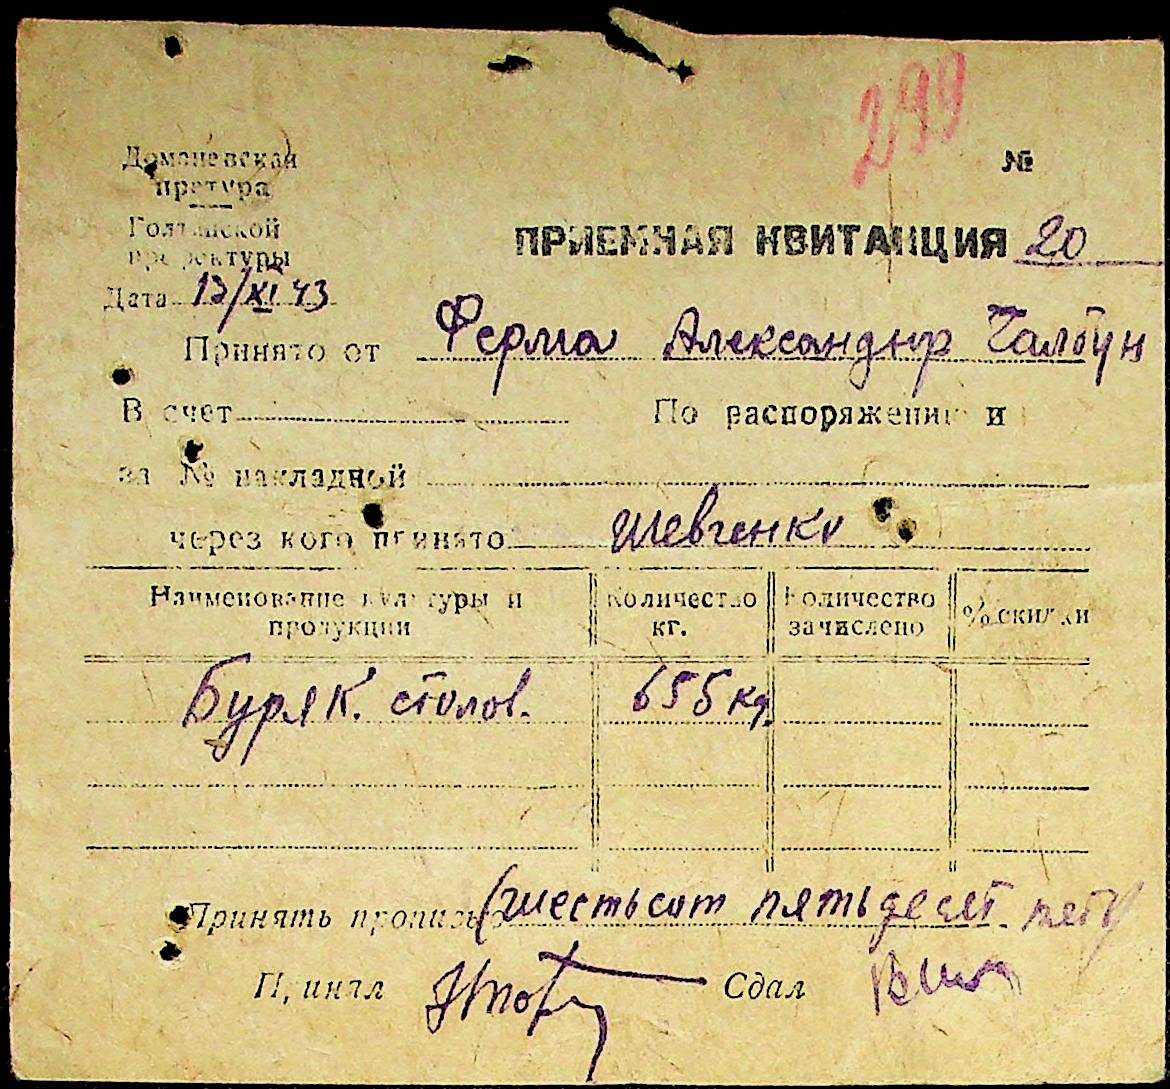 299
№
Доманевская
претура
Голтянской
префектуры
ПРИЕМНАЯ КВИТАНЦИЯ 20
Дата 13/XI 43
Принято от Ферма Александир Чалбун
В счет По распоряжению и
за № накладной
через кого принято Шевченко
Наименование культуры и продукции
Количество кг.
Количество зачислено
% скидки
Буряк. столов. 655 кг.
Принять прописью (шестьсот пятьдесят пять)
Принял Сдал